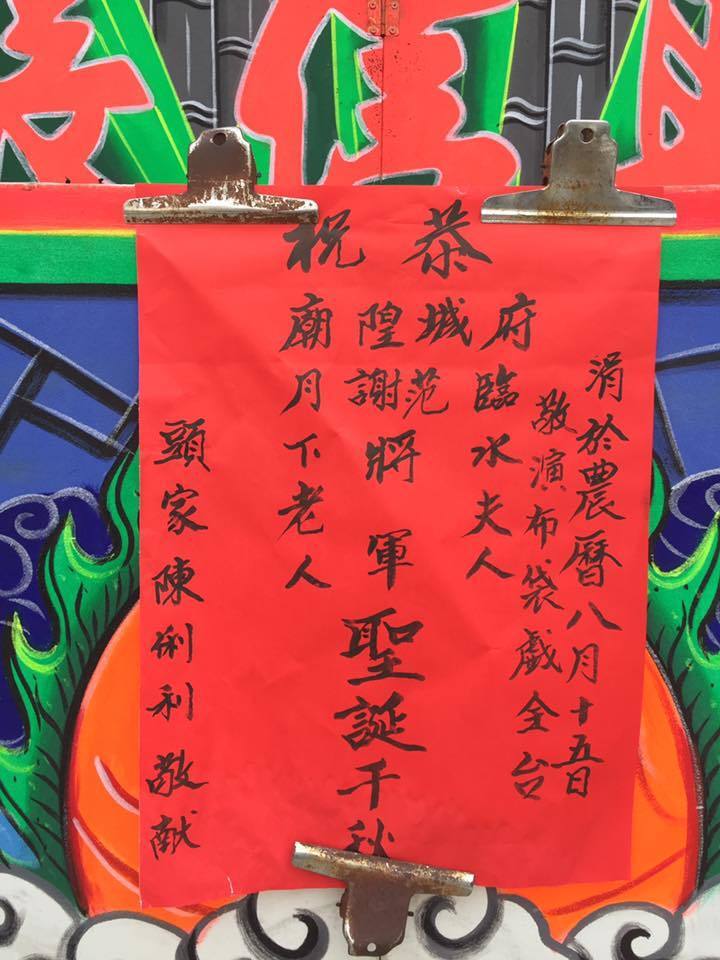 恭祝
涓於農曆八月十五日
敬演布袋戲全台
府城隍廟
臨水夫人
范謝將軍
月下老人
聖誕千秋
頭家陳俐利敬献